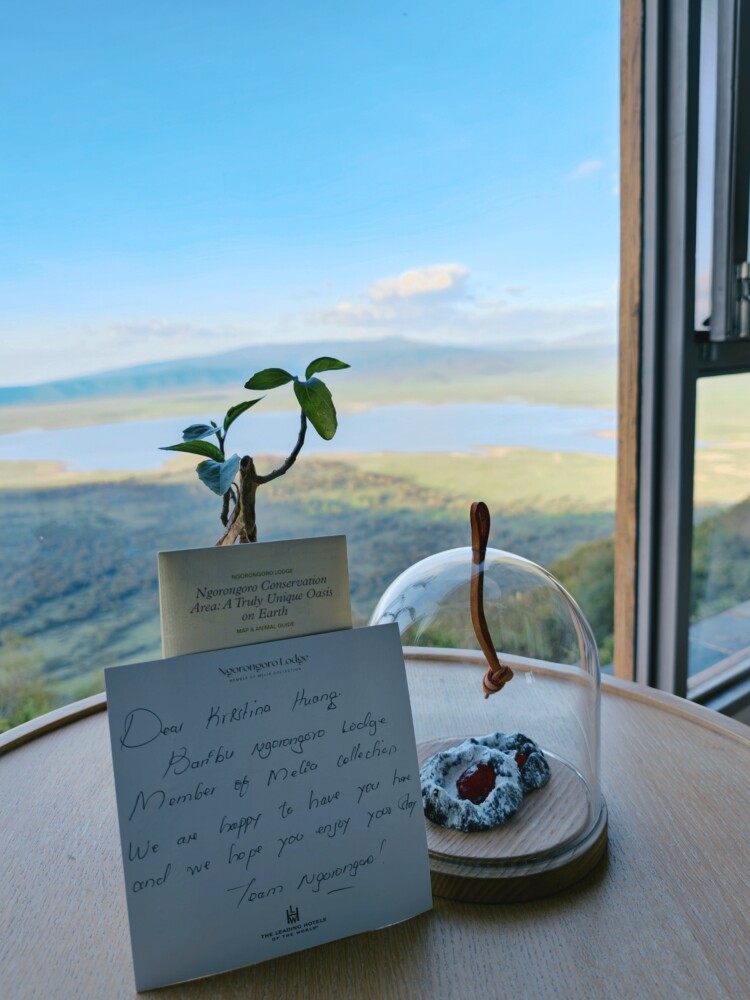 NGORONGORO LODGE
Ngorongoro Conservation
Area: A Truly Unique Oasis
on Earth
MAP & ANIMAL GUIDE
Ngorongoro Lodge
MEMBER OF MELIÁ COLLECTION
Dear Kristina Huang
Karibu Ngorongoro Lodge
Member of Melia Collection
We are happy to have you here
and we hope you enjoy your stay
Team Ngorongoro!
THE LEADING HOTELS
OF THE WORLD®